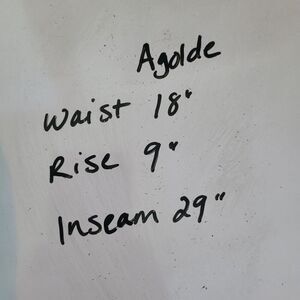 Agolde
Waist 18"
Rise 9"
Inseam 29"